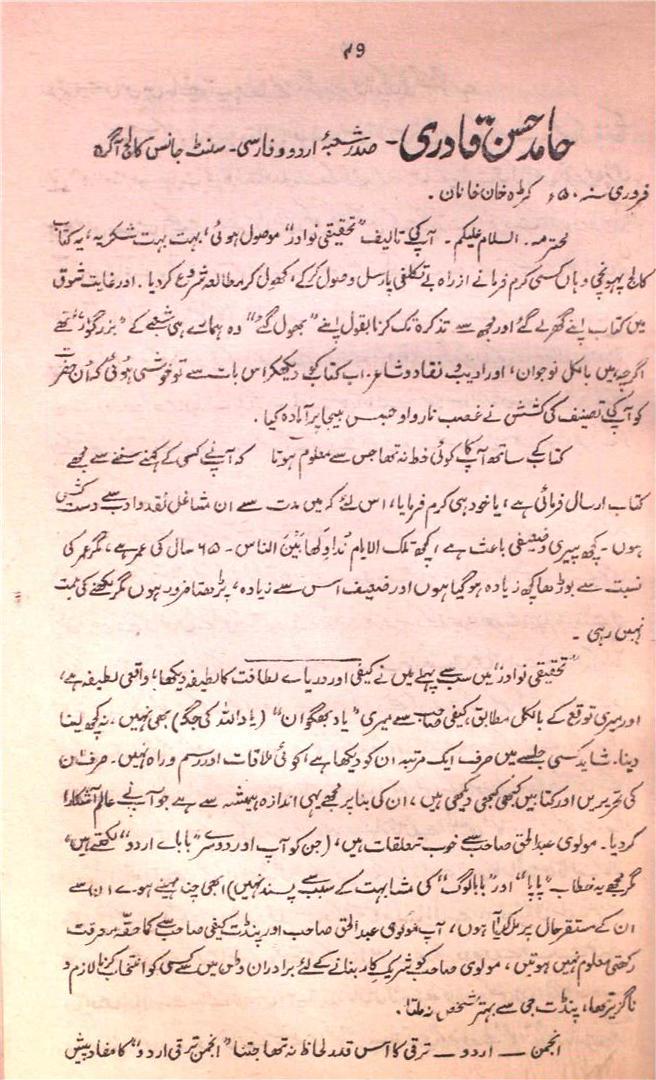 ۴۹
حامد حسن قادری - صدر شعبۂ اردو و فارسی - سنٹ جانس کالج آگرہ
فروری سنہ ۵۰ء گڑہ خان خانان ۔
محترمہ ۔ السلام علیکم ۔ آپ کی تالیف "تحقیقی نوادر" موصول ہوئی، بہت بہت شکریہ، یہ کتاب
کالج پہونچی وہاں کسی کرم فرما نے از راہ بے تکلفی پارسل وصول کر کے، کھول کر مطالعہ شروع کر دیا ۔ اور غایت شوق
میں کتاب اپنے گھر لے گئے اور مجھ سے تذکرہ تک کرنا بقول اپنے "بھول گئے" وہ ہمارے ہی شعبے کے "بزرگوار" تھے
اگرچہ ہیں بالکل نوجوان، اور ادیب و نقاد و شاعر ۔ اب کتاب کو دیکھکر اس بات سے تو خوشی ہوئی کہ اُن حضرت
کو آپ کی تصنیف کی کشش نے غصب ناروا و حبس بیجا پر آمادہ کیا ۔
کتاب کے ساتھ آپ کا کوئی خط نہ تھا جس سے معلوم ہوتا کہ آپ نے کسی کے کہنے سننے سے مجھے
کتاب ارسال فرمائی ہے، یا خود ہی کرم فرمایا، اس لئے کہ میں مدت سے ان مشاغل نقد و ادب سے دست کش
ہوں ۔ کچھ پیری و ضعیفی باعث ہے، کچھ تلک الایام نُداوِلُھا بَیْنَ الناس ۔ ۶۵ سال کی عمر ہے، مگر عمر کی
نسبت سے بوڑھا کچھ زیادہ ہو گیا ہوں اور ضعیف اُس سے زیادہ، پڑھتا ضرور ہوں مگر لکھنے کی ہمت
نہیں رہی ۔
"تحقیقی نوادر" میں سب سے پہلے میں نے کیفی اور دریاے لطافت کا لطیفہ دیکھا، واقعی لطیفہ ہے،
اور میری توقع کے بالکل مطابق، کیفی صاحب سے میری "یاد بھگوان" (یاد اللہ کی جگہ) بھی نہیں ۔ نہ کچھ لینا
دینا ۔ شاید کسی جلسے میں صرف ایک مرتبہ ان کو دیکھا ہے، کوئی ملاقات اور رسم و راہ نہیں ۔ صرف ان
کی تحریریں اور کتابیں کبھی کبھی دیکھی ہیں، ان کی بنا پر مجھے یہی اندازہ ہمیشہ سے ہے جو آپ نے عالم آشکارا
کر دیا ۔ مولوی عبدالحق صاحب سے خوب تعلقات ہیں، (جن کو آپ اور دوسرے "باباے اردو" لکھتے ہیں،
مگر مجھے یہ خطاب "پاپا" اور "بابا لوگ" کی مشابہت کے سبب سے پسند نہیں) ابھی چند مہینے ہوے ان سے
ان کے مستقر حال پر مل کر آیا ہوں، آپ مولوی عبدالحق صاحب اور پنڈت کیفی صاحب سے کما حقہٗ معرفت
رکھتی معلوم نہیں ہوتیں، مولوی صاحب کو شریک کار بنانے کے لئے برادران وطن میں کسی کو انتخاب کرنا لازم و
ناگزیر تھا، پنڈت جی سے بہتر شخص نہ ملتا ۔
انجمن — اردو — ترقی کا اُس قدر لحاظ نہ تھا جتنا "انجمن ترقی اردو" کا مفاد پیش